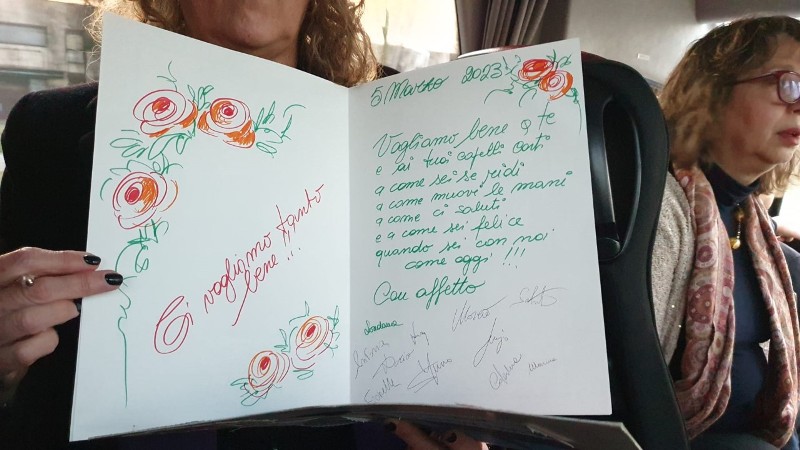 Ti vogliamo tanto
bene!!!
5 Marzo 2023
Vogliamo bene a te
e ai tuoi capelli corti
a come sei se ridi
a come muovi le mani
a come ci saluti
e a come sei felice
quando sei con noi
come oggi!!!
Con affetto
Loredana